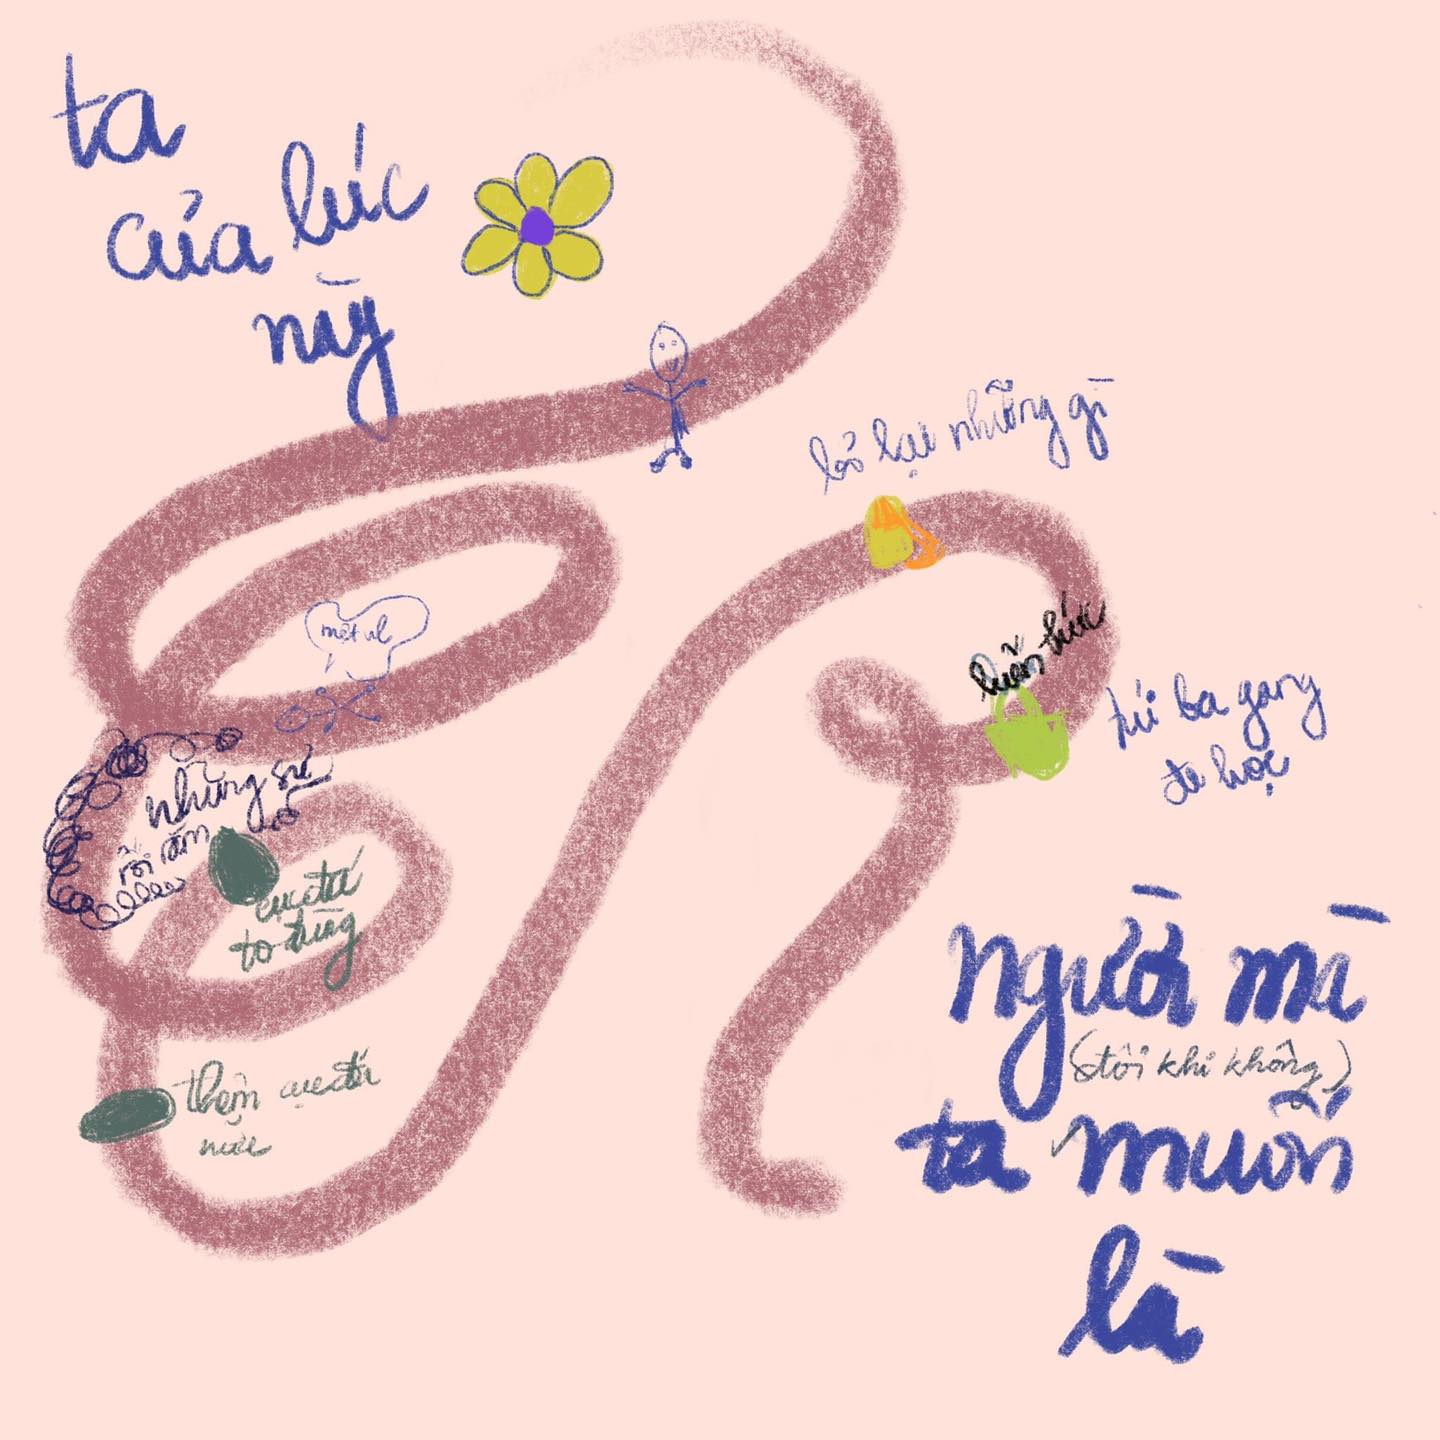 ta
của lúc
này
bỏ lại những gì
mệt vl
kiến thức
túi ba gang
để học
những sự
rối rắm
cục đá
to đùng
thêm cục đá
nữa
người mà
(tôi khi không)
ta muốn
là